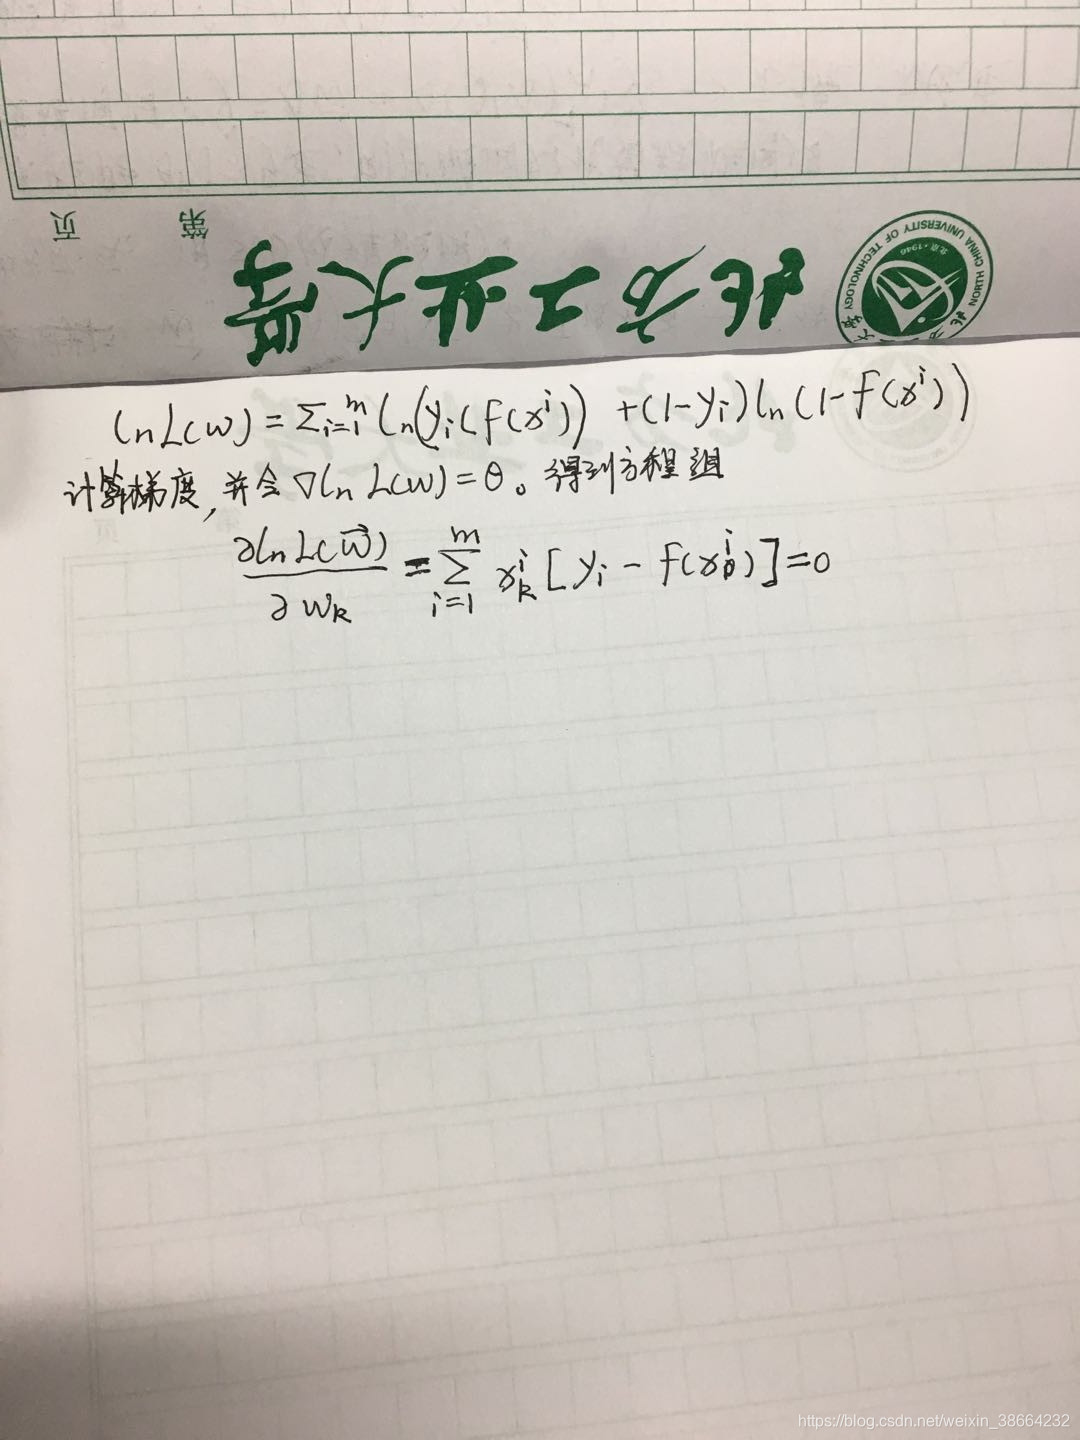 页 第
北方工业大学
NORTH CHINA UNIVERSITY OF TECHNOLOGY
北京·1946
ln L(w) = Σ_{i=1}^{m} ln(y_i(f(x^i)) + (1-y_i)ln(1-f(x^i))
计算梯度,并令 ▽ln L(w) = θ。得到方程组
∂ln L(w⃗)/∂w_k = Σ_{i=1}^{m} x_k^i [y_i - f(x^i)] = 0
https://blog.csdn.net/weixin_38664232